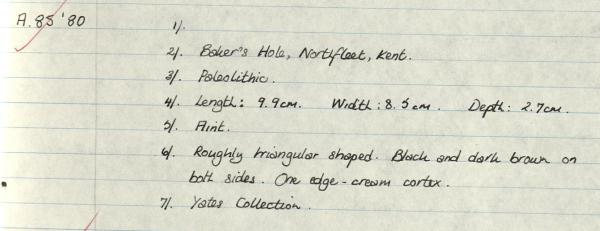 A.85 '80
1/.
2/. Baker's Hole, Northfleet, Kent.
3/. Paleolithic.
4/. Length: 9.9cm. Width: 8.5cm. Depth: 2.7cm.
5/. Flint.
6/. Roughly triangular shaped. Black and dark brown on
both sides. One edge - cream cortex.
7/. Yates Collection.